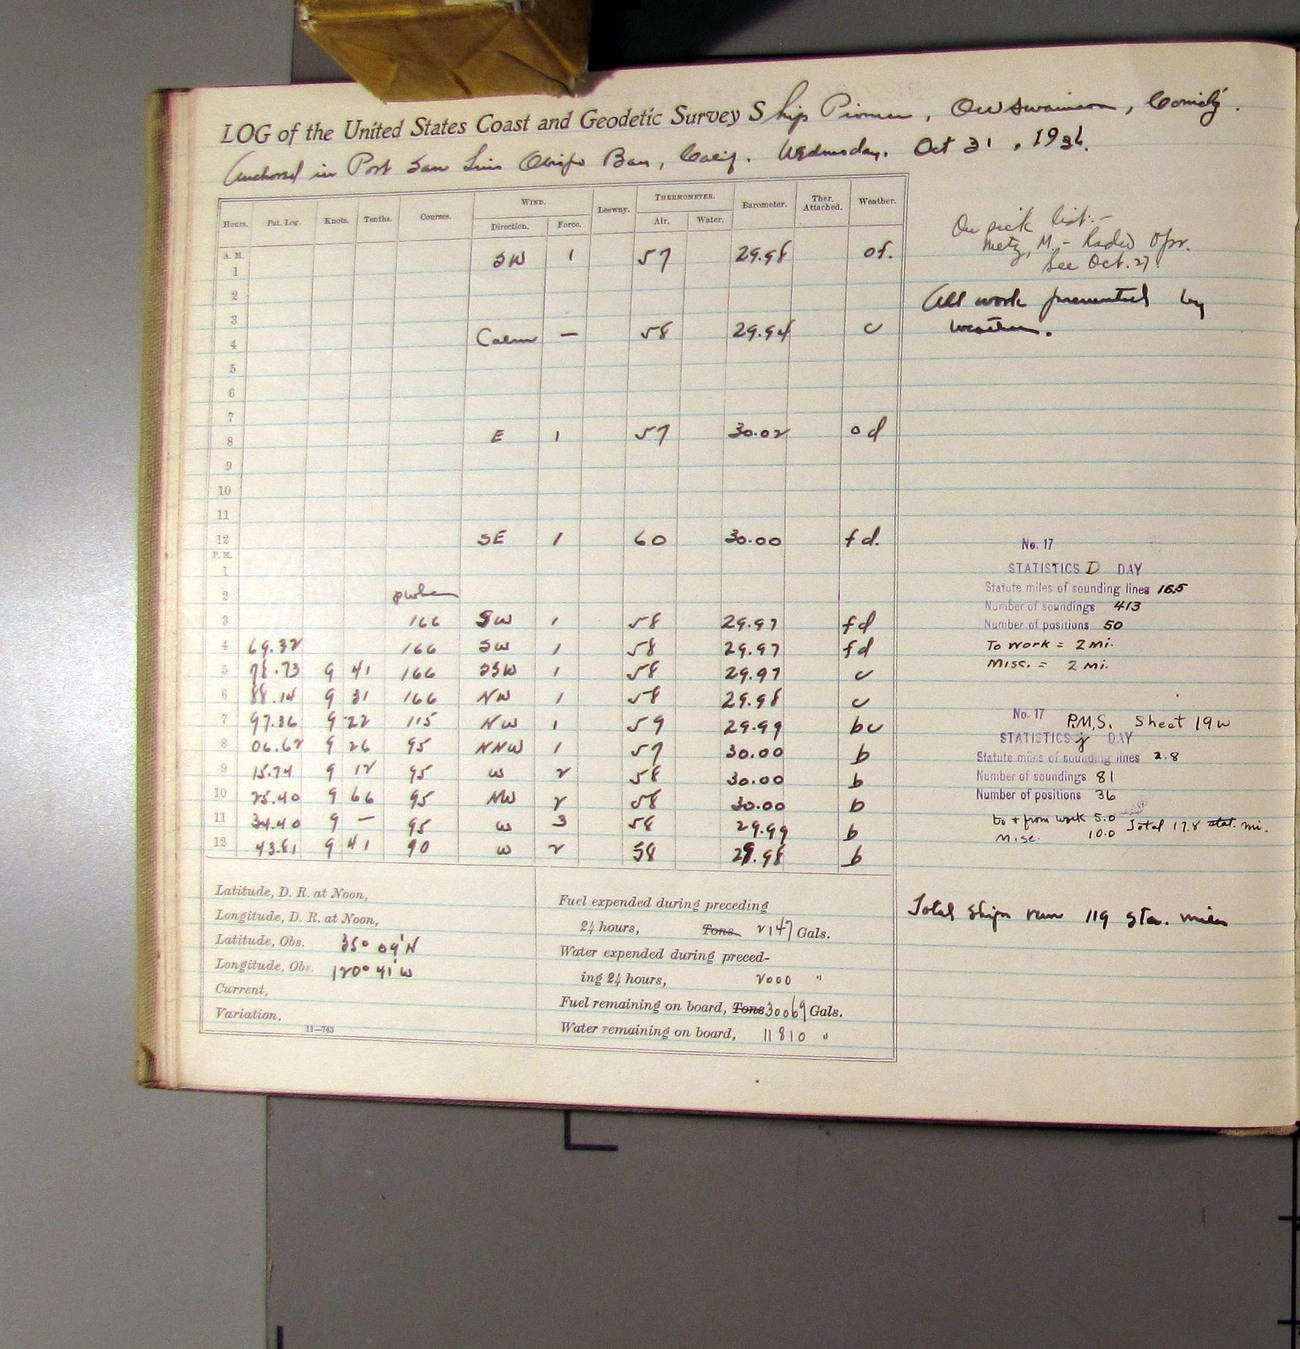 LOG of the United States Coast and Geodetic Survey Ship Pioneer, O W Swainson, Comdg.
Anchored in Port San Luis Obispo Bay, Calif. Wednesday. Oct 31, 1934.
WIND. THERMOMETER.
Hours. Pat. Log. Knots. Tenths. Courses. Direction. Force. Leeway. Air. Water. Barometer. Ther. Attached. Weather.
A. M.
1 SW 1 57 29.98 of.
2
3
4 Calm — 58 29.94 c
5
6
7
8 E 1 57 30.02 od
9
10
11
12 SE 1 60 30.00 fd.
P. M.
1
2
3 166 SW 1 58 29.97 fd
4 69.32 166 SW 1 58 29.97 fd
5 78.73 9 41 166 SSW 1 58 29.97 c
6 88.14 9 31 166 NW 1 58 29.98 c
7 97.36 9 22 115 NW 1 59 29.99 bc
8 06.62 9 26 95 NNW 1 57 30.00 b
9 15.74 9 12 95 W 2 58 30.00 b
10 25.40 9 66 95 NW 2 58 30.00 b
11 34.40 9 — 95 W 3 58 29.99 b
12 43.81 9 41 90 W 2 58 29.98 b
Latitude, D. R. at Noon,
Longitude, D. R. at Noon,
Latitude, Obs. 35° 09' N
Longitude, Obs. 120° 41' W
Current,
Variation.
11—763
Fuel expended during preceding
24 hours, Tons 2147 Gals.
Water expended during preced-
ing 24 hours, 2000 "
Fuel remaining on board, Tons 30069 Gals.
Water remaining on board, 11810 "
On sick list:-
Metz, M. - Radio Opr.
See Oct. 27
All work prevented by
weather.
No. 17
STATISTICS D DAY
Statute miles of sounding lines 16.5
Number of soundings 413
Number of positions 50
To work = 2 mi.
Misc. = 2 mi.
No. 17 P.M.S. Sheet 19 w
STATISTICS g DAY
Statute miles of sounding lines 2.8
Number of soundings 81
Number of positions 36
to + from work 5.0
Misc. 10.0 Total 17.8 stat. mi.
Total ships run 119 sta. miles